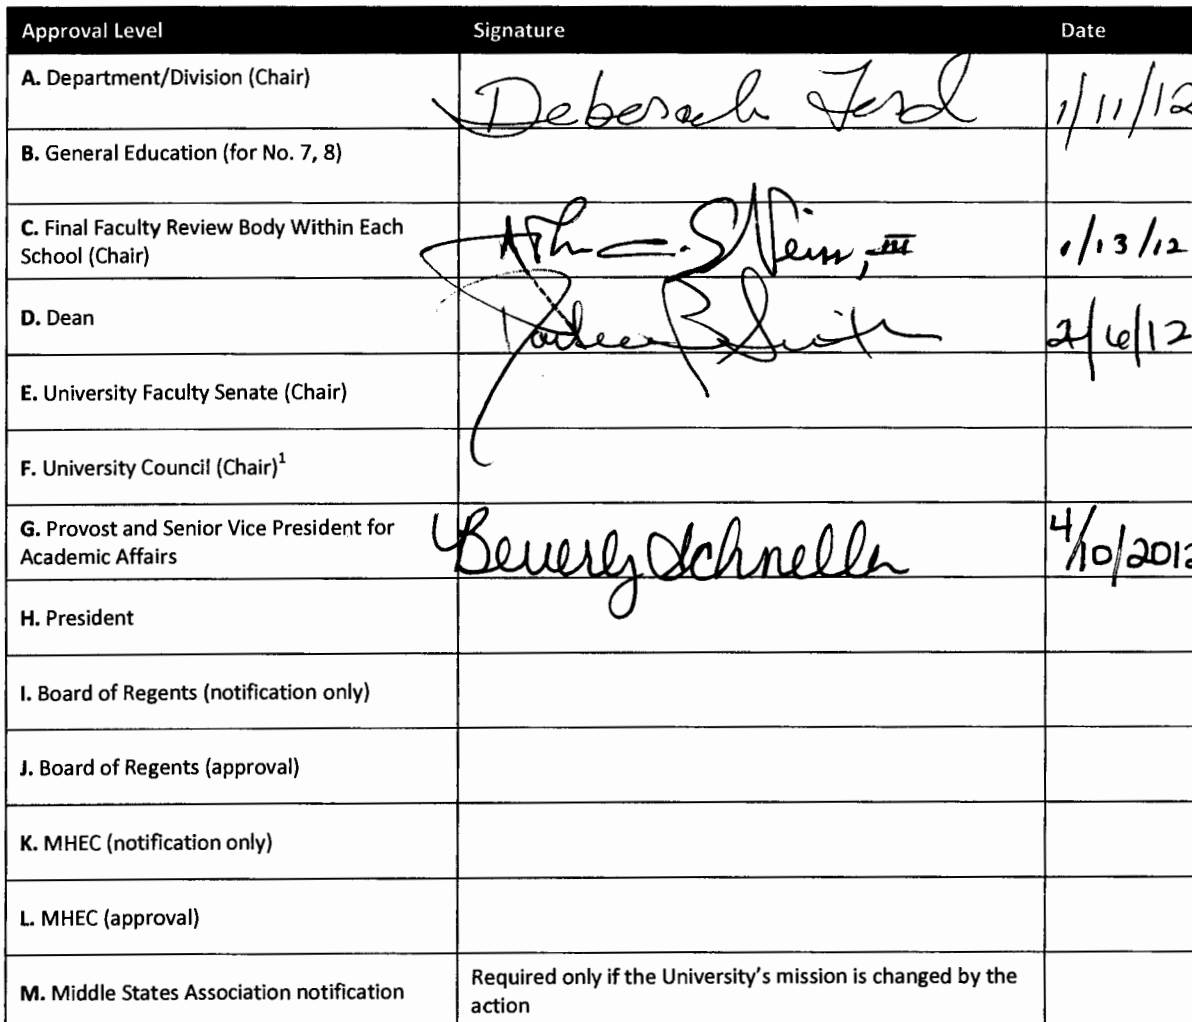 Approval Level Signature Date
A. Department/Division (Chair) Deborah Ford 1/11/12
B. General Education (for No. 7, 8)
C. Final Faculty Review Body Within Each
School (Chair) III 1/13/12
D. Dean B Smith 2/6/12
E. University Faculty Senate (Chair)
F. University Council (Chair)¹
G. Provost and Senior Vice President for
Academic Affairs Beverly Schneller 4/10/2012
H. President
I. Board of Regents (notification only)
J. Board of Regents (approval)
K. MHEC (notification only)
L. MHEC (approval)
M. Middle States Association notification Required only if the University's mission is changed by the
action